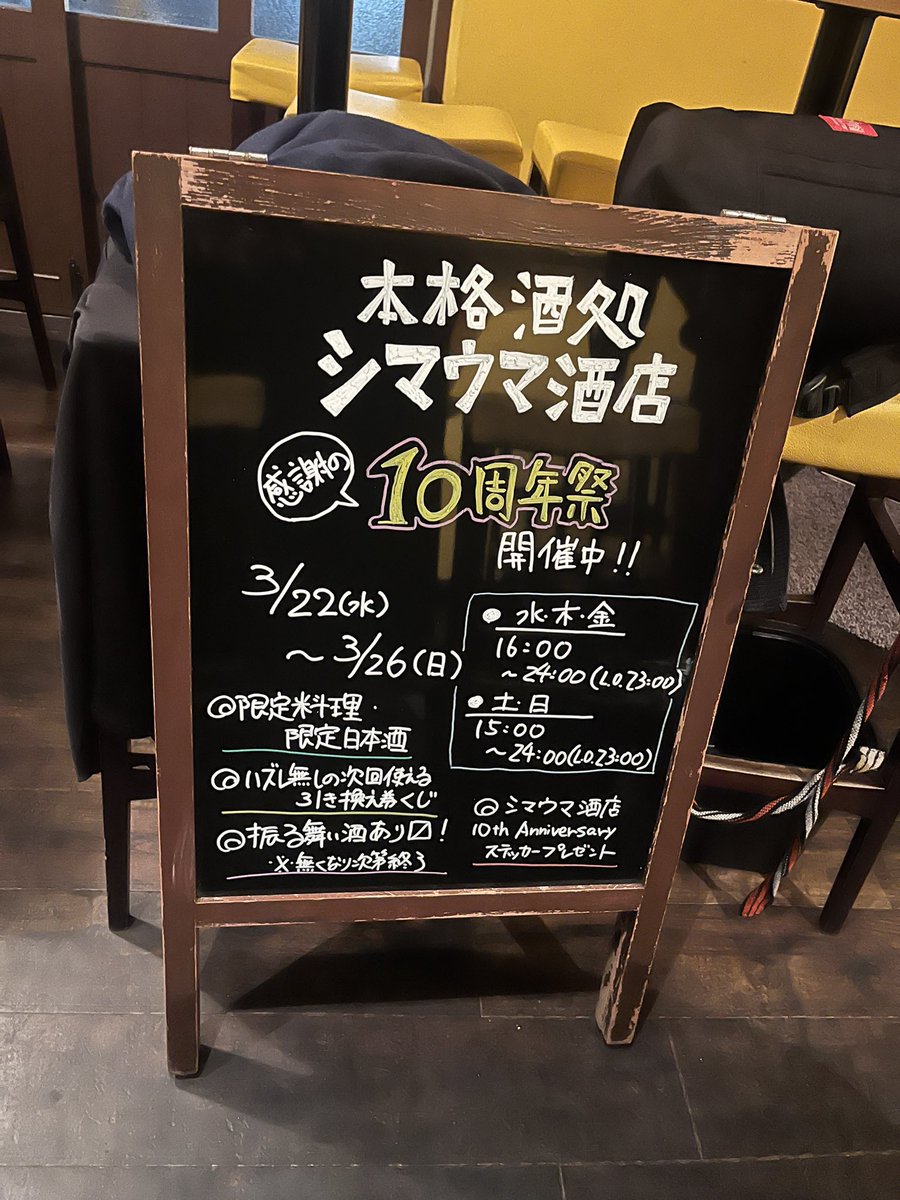 本格酒処
シマウマ酒店
感謝の
10周年祭
開催中!!
3/22(水)
～3/26(日)
●水・木・金
16:00
～24:00(L.O.23:00)
●土・日
15:00
～24:00(L.O.23:00)
◎限定料理・
限定日本酒
◎ハズレ無しの次回使える
引き換え券くじ
◎振る舞い酒あり〼!
※無くなり次第終了
◎シマウマ酒店
10th Anniversary
ステッカープレゼント